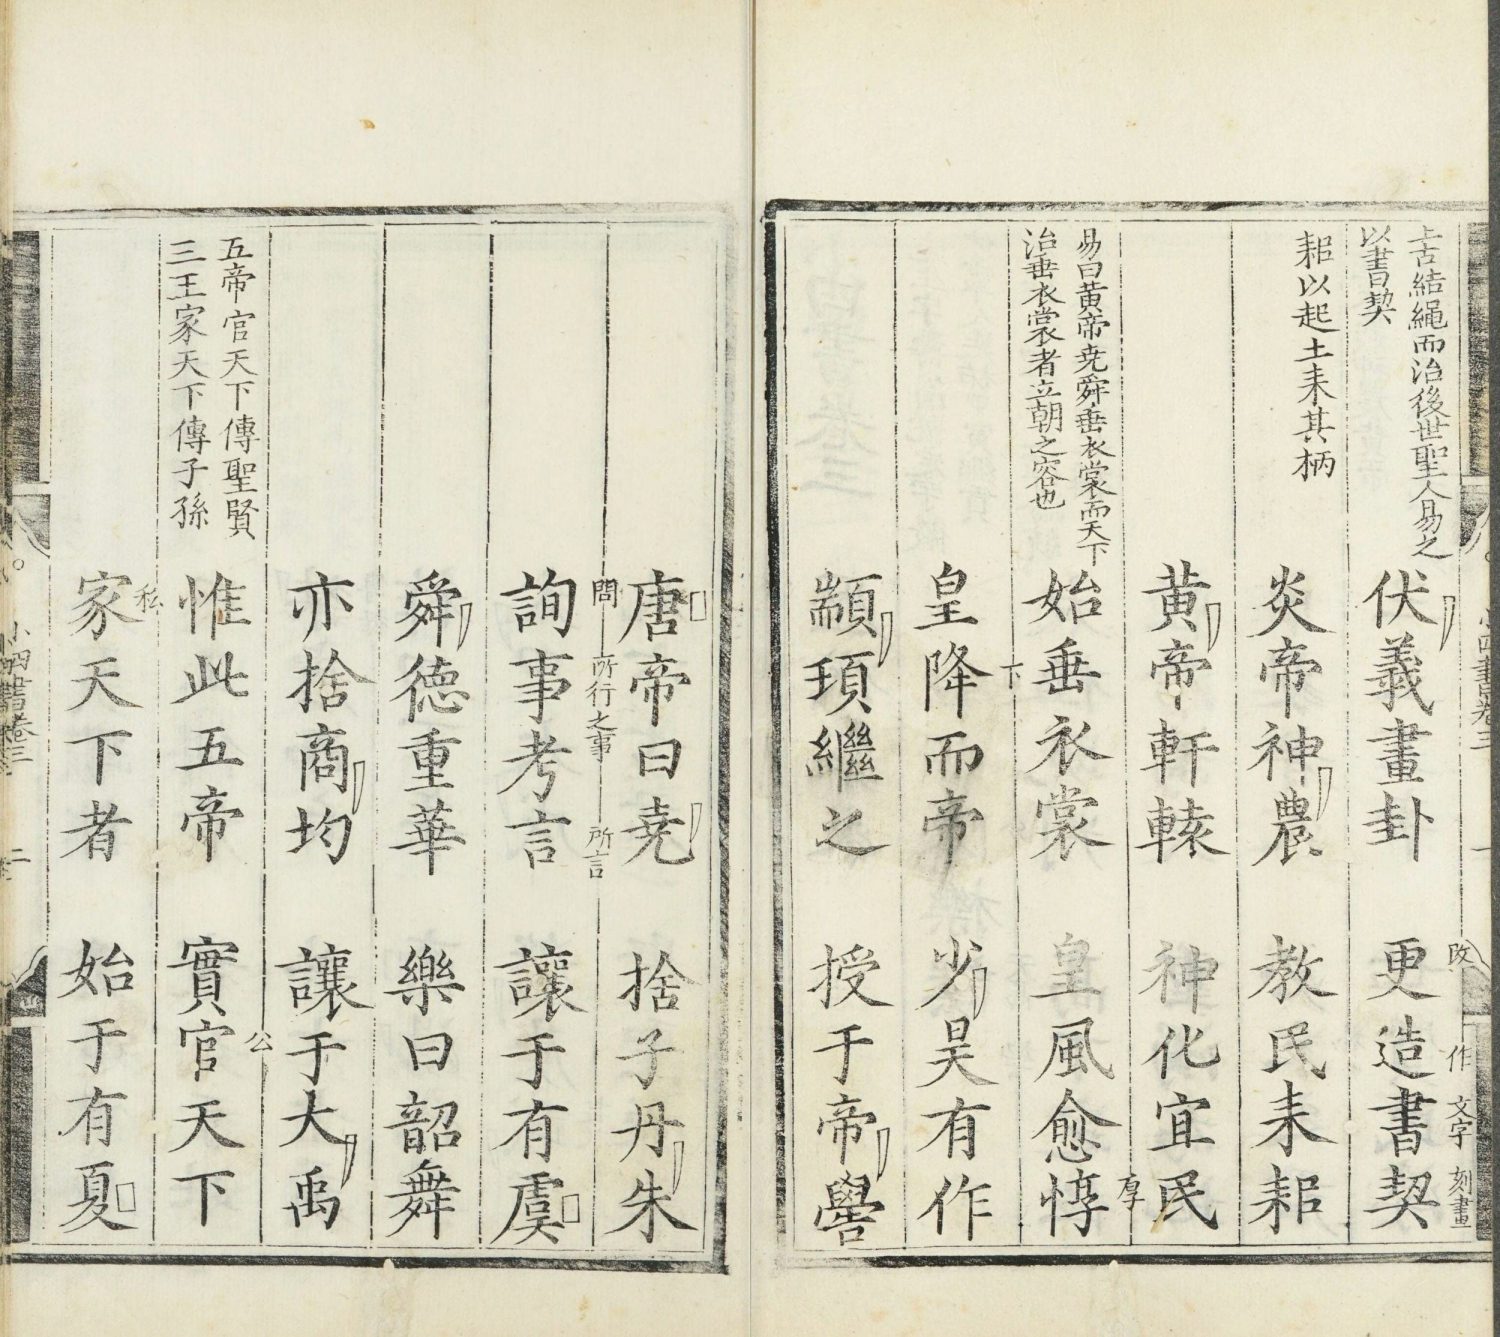 上古結繩而治後世聖人易之
以書契
伏羲畫卦 更造書契
改 作 文字 刻畫
耜以起土耒其柄
炎帝神農 教民耒耜
黃帝軒轅 神化宜民
易曰黃帝堯舜垂衣裳而天下
治垂衣裳者立朝之容也
始垂衣裳 皇風愈惇
厚
皇降而帝 少昊有作
下
顓頊繼之 授于帝嚳
唐帝曰堯 捨子丹朱
詢事考言 讓于有虞
問 所行之事 所言
舜德重華 樂曰韶舞
亦捨商均 讓于大禹
五帝官天下傳聖賢
三王家天下傳子孫
惟此五帝 實官天下
公
家天下者 始于有夏
私
小四書卷三
二